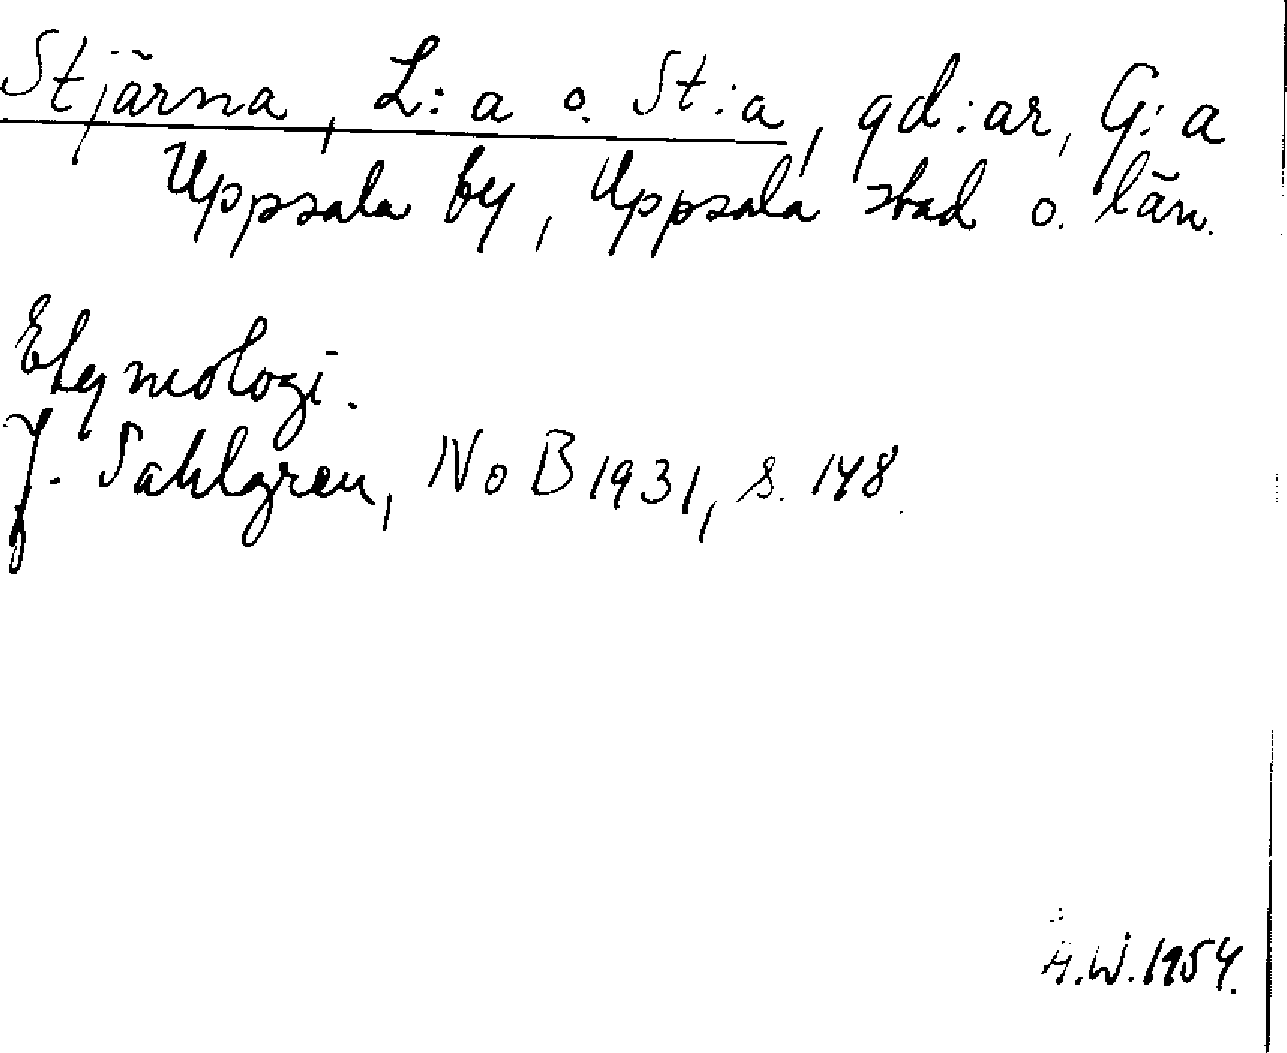 Stjärna, L:a o. St:a, gd:ar, G:a
Uppsala by, Uppsala stad o. län.
Etymologi.
J. Sahlgren, NoB 1931, s. 148.
Ä.W. 1954.